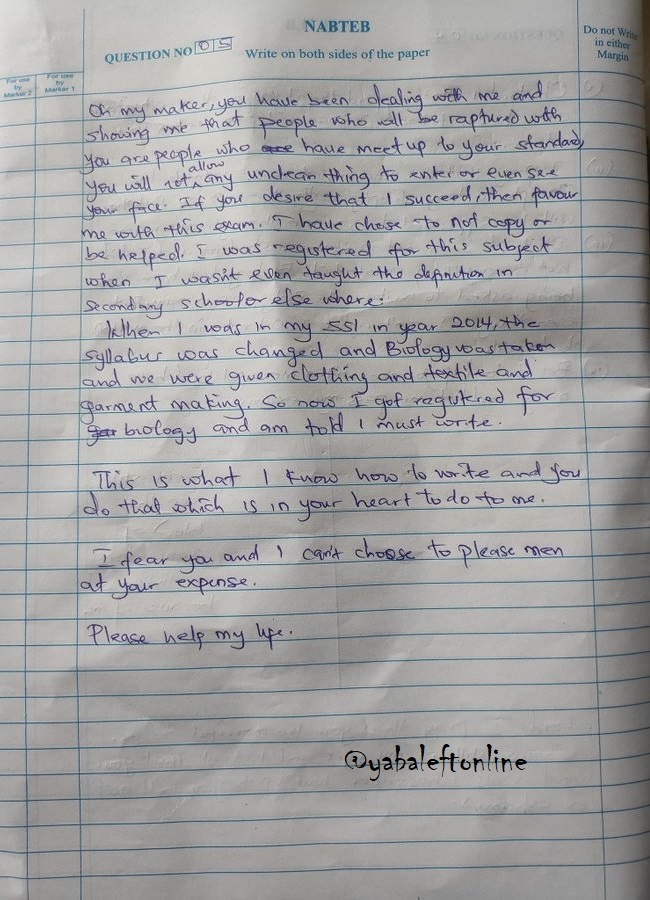 NABTEB
QUESTION NO 05 Write on both sides of the paper
Do not Write
in either
Margin
For use
by
Marker 2
For use
by
Marker 1
Oh my maker, you have been dealing with me and
showing me that people who will be raptured with
you are people who have meet up to your standard,
You will not allow any unclean thing to enter or even see
your face. If you desire that I succeed, then favour
me with this exam. I have chose to not copy or
be helped. I was registered for this subject
when I wasn't even taught the definition in
secondary school or else where.
When I was in my SS1 in year 2014, the
syllabus was changed and Biology was taken
and we were given clothing and textile and
garment making. So now I got registered for
biology and am told I must write.
This is what I know how to write and you
do that which is in your heart to do to me.
I fear you and I can't choose to please men
at your expense.
Please help my life.
@yabaleftonline